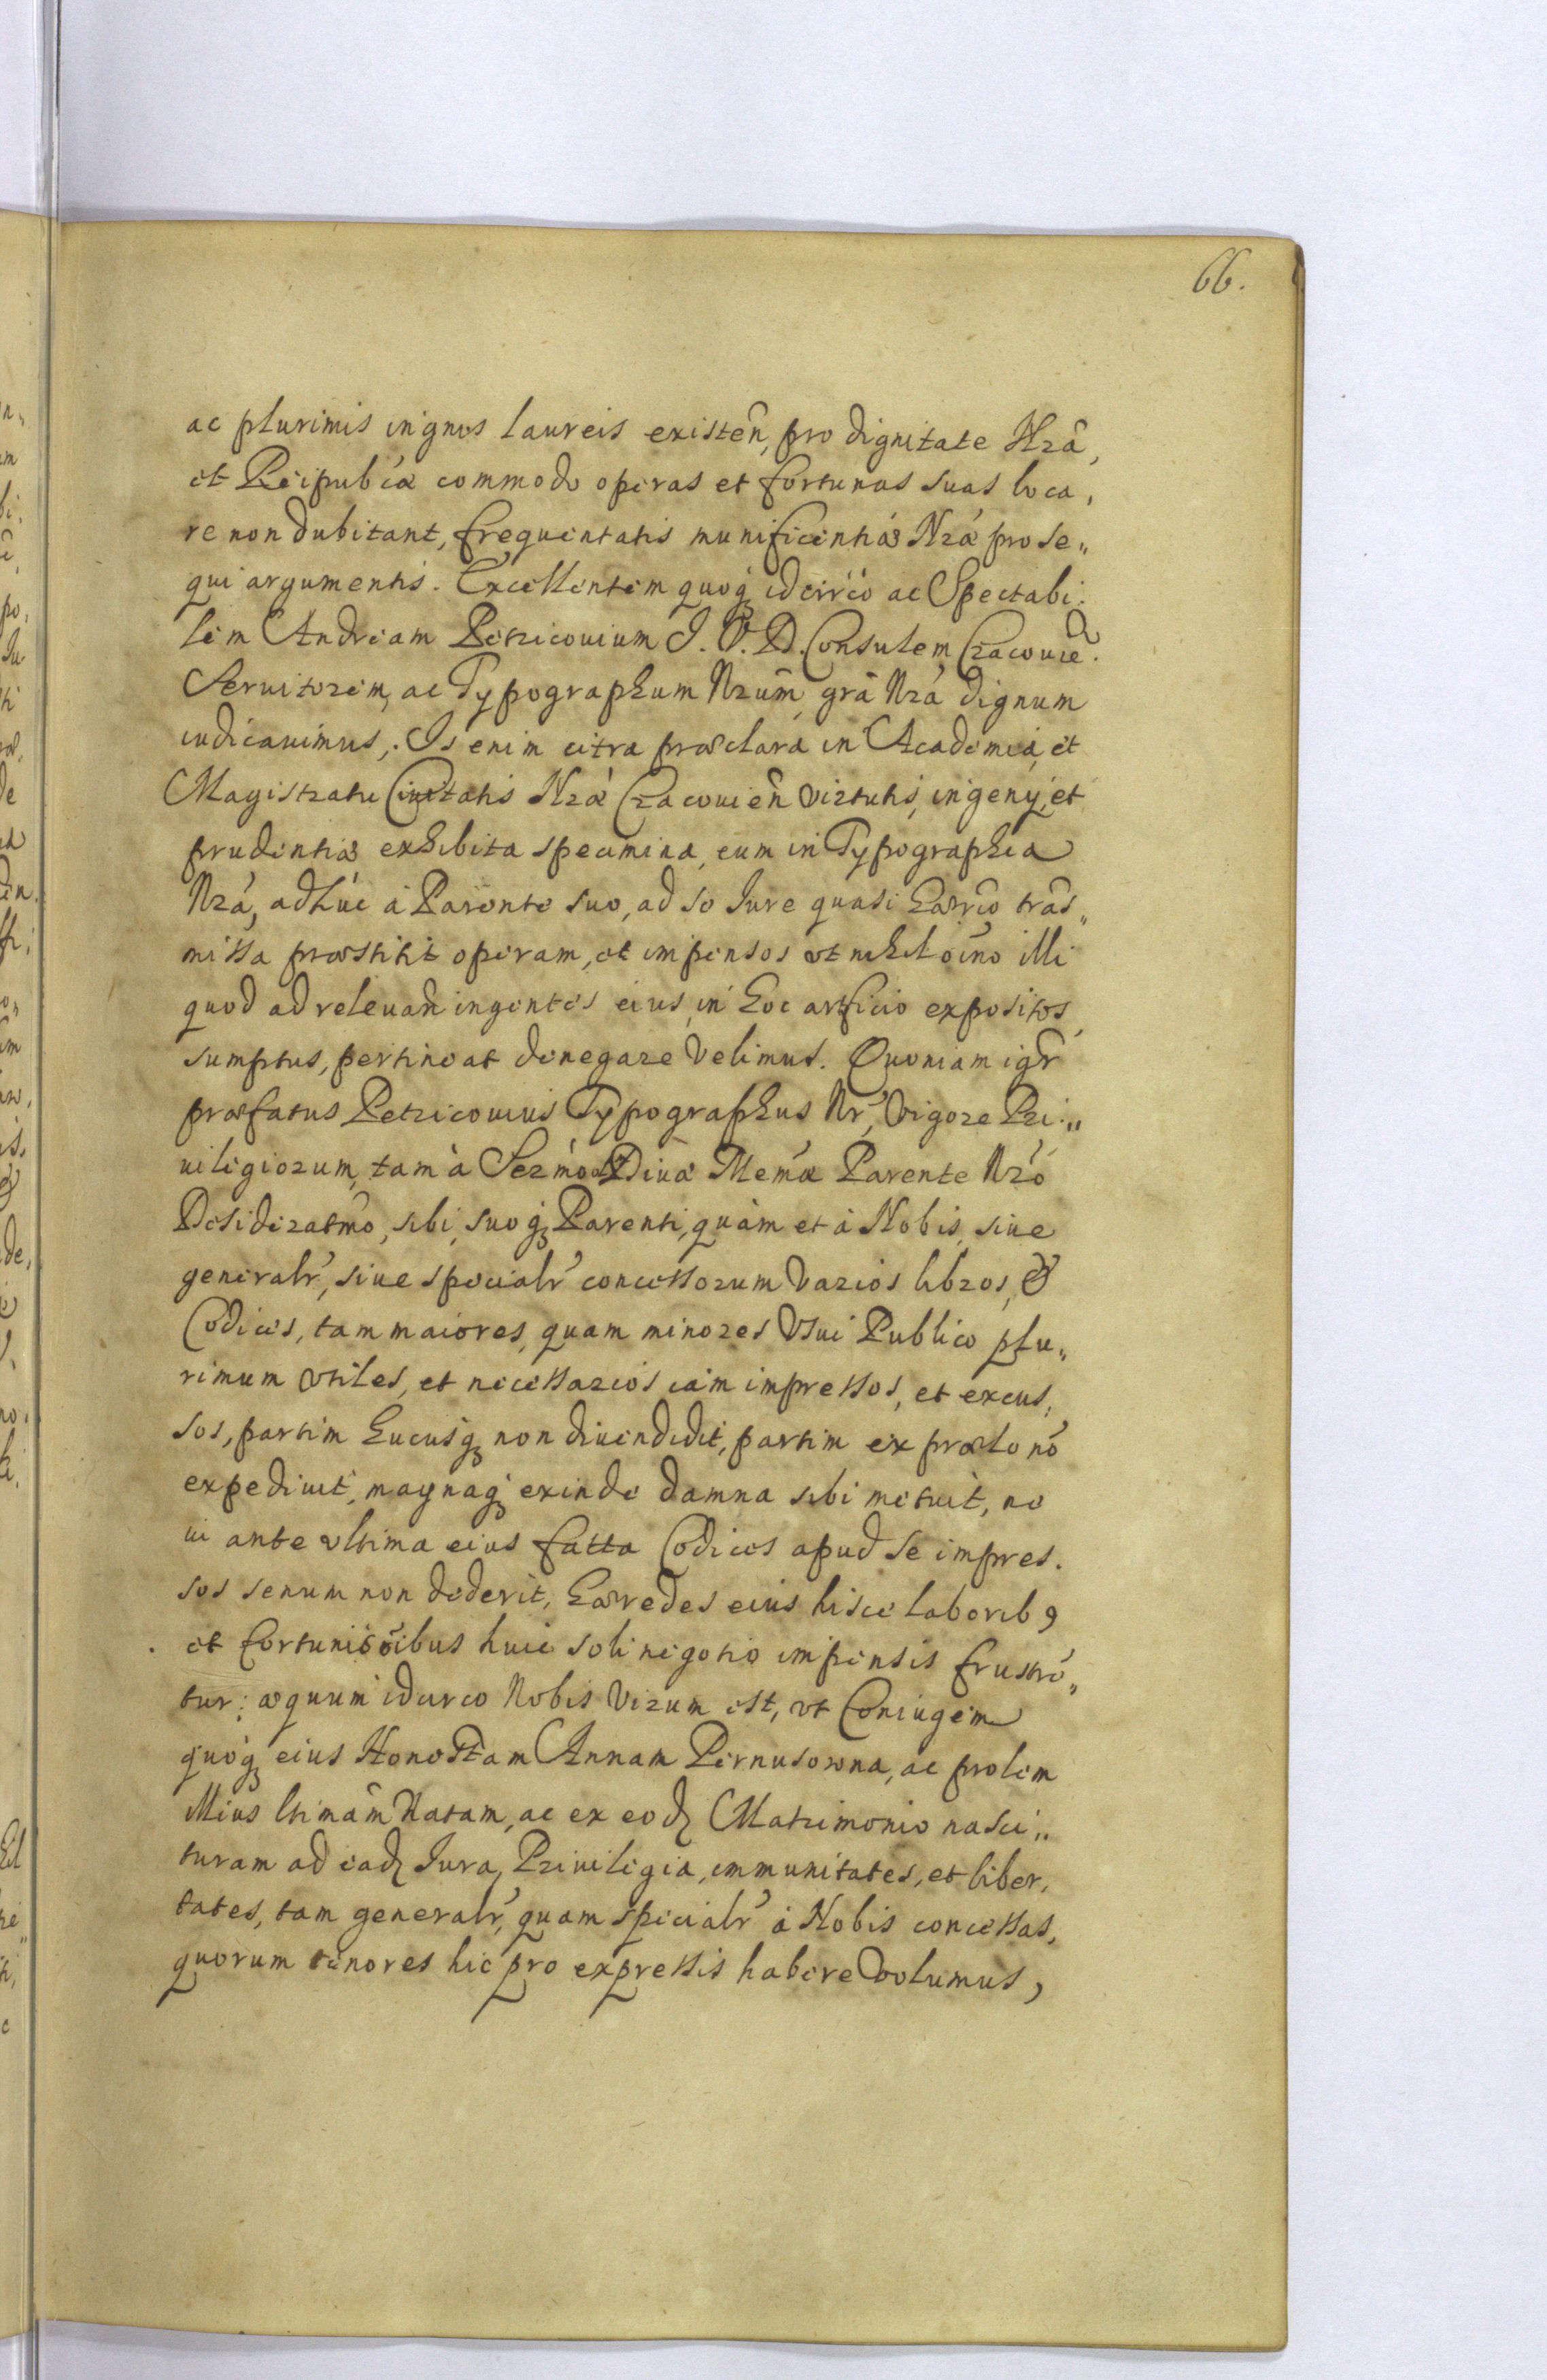 66.
ac plurimis in gnos laureis existeñ, pro dignitate Nrâ,
et Reipubćæ commodo operas et fortunas suas loca,
re non dubitant, frequentatis munificentiæ Nræ prose„
qui argumentis. Excellentem quoq́ idcirćo ac Spectabi:
lem Andream Petricouium J. V. D. Consulem Cracouieñ.
Seruitorem, ac Typographum Nrũm, grã Nrá dignum
iudicauimus,. Is enim citra præclara in Academia, et
Magistratu Ciuitatis Nræ Cracouieñ virtutis, ingenij, et
prudentiæ exhibita specimina, eum in Typographia
Nrá, adhúc á Parente suo, ad se Jure quasi hærrio trãs„
missa præstitit operam, et impensos vt nihil oíno illi
quod ad releuañ ingentes eius, in hoc artficio expositos
sumptus, pertineat denegare velimus. Quoniam igr̃
præfatus Petricouius Typographus Nr̃, vigore Pri:„
uilegiorum, tam à Sermo Diuæ Memæ Parente Nró
Desideratmo, sibi, suoq́ Parenti, quàm et à Nobis, siue
generalr̃, siue specialr̃ concessorum varios libros, &
Codices, tam maiores, quam minores Vsui Publico plu„
rimum vtiles, et necessarios iam impressos, et excus,
sos, partim hucusq́ non diuendidit, partim ex prælo nõ
expediuit, magnaq́ exinde damna sibi metuit, ne
ui ante vltima eius fatta Codices apud se impres.
sos senum non dederit, hærredes eius hisce laborib9
et fortunis oíbus huic soli negotio impensis frustrẽ„
tur: æquum idcirco Nobis vizum est, vt Coniugem
quoq́ eius Honestam Annam Pernusowna, ac prolem
illius ltimãm Natam, ac ex eod Matrimonio nasci„
turam ad ead Jura, Priuilegia, immunitates, et liber,
tates, tam generalr̃, quam specialr̃ á Nobis concessas,
quorum tenores hic pro expressis habere volumus,